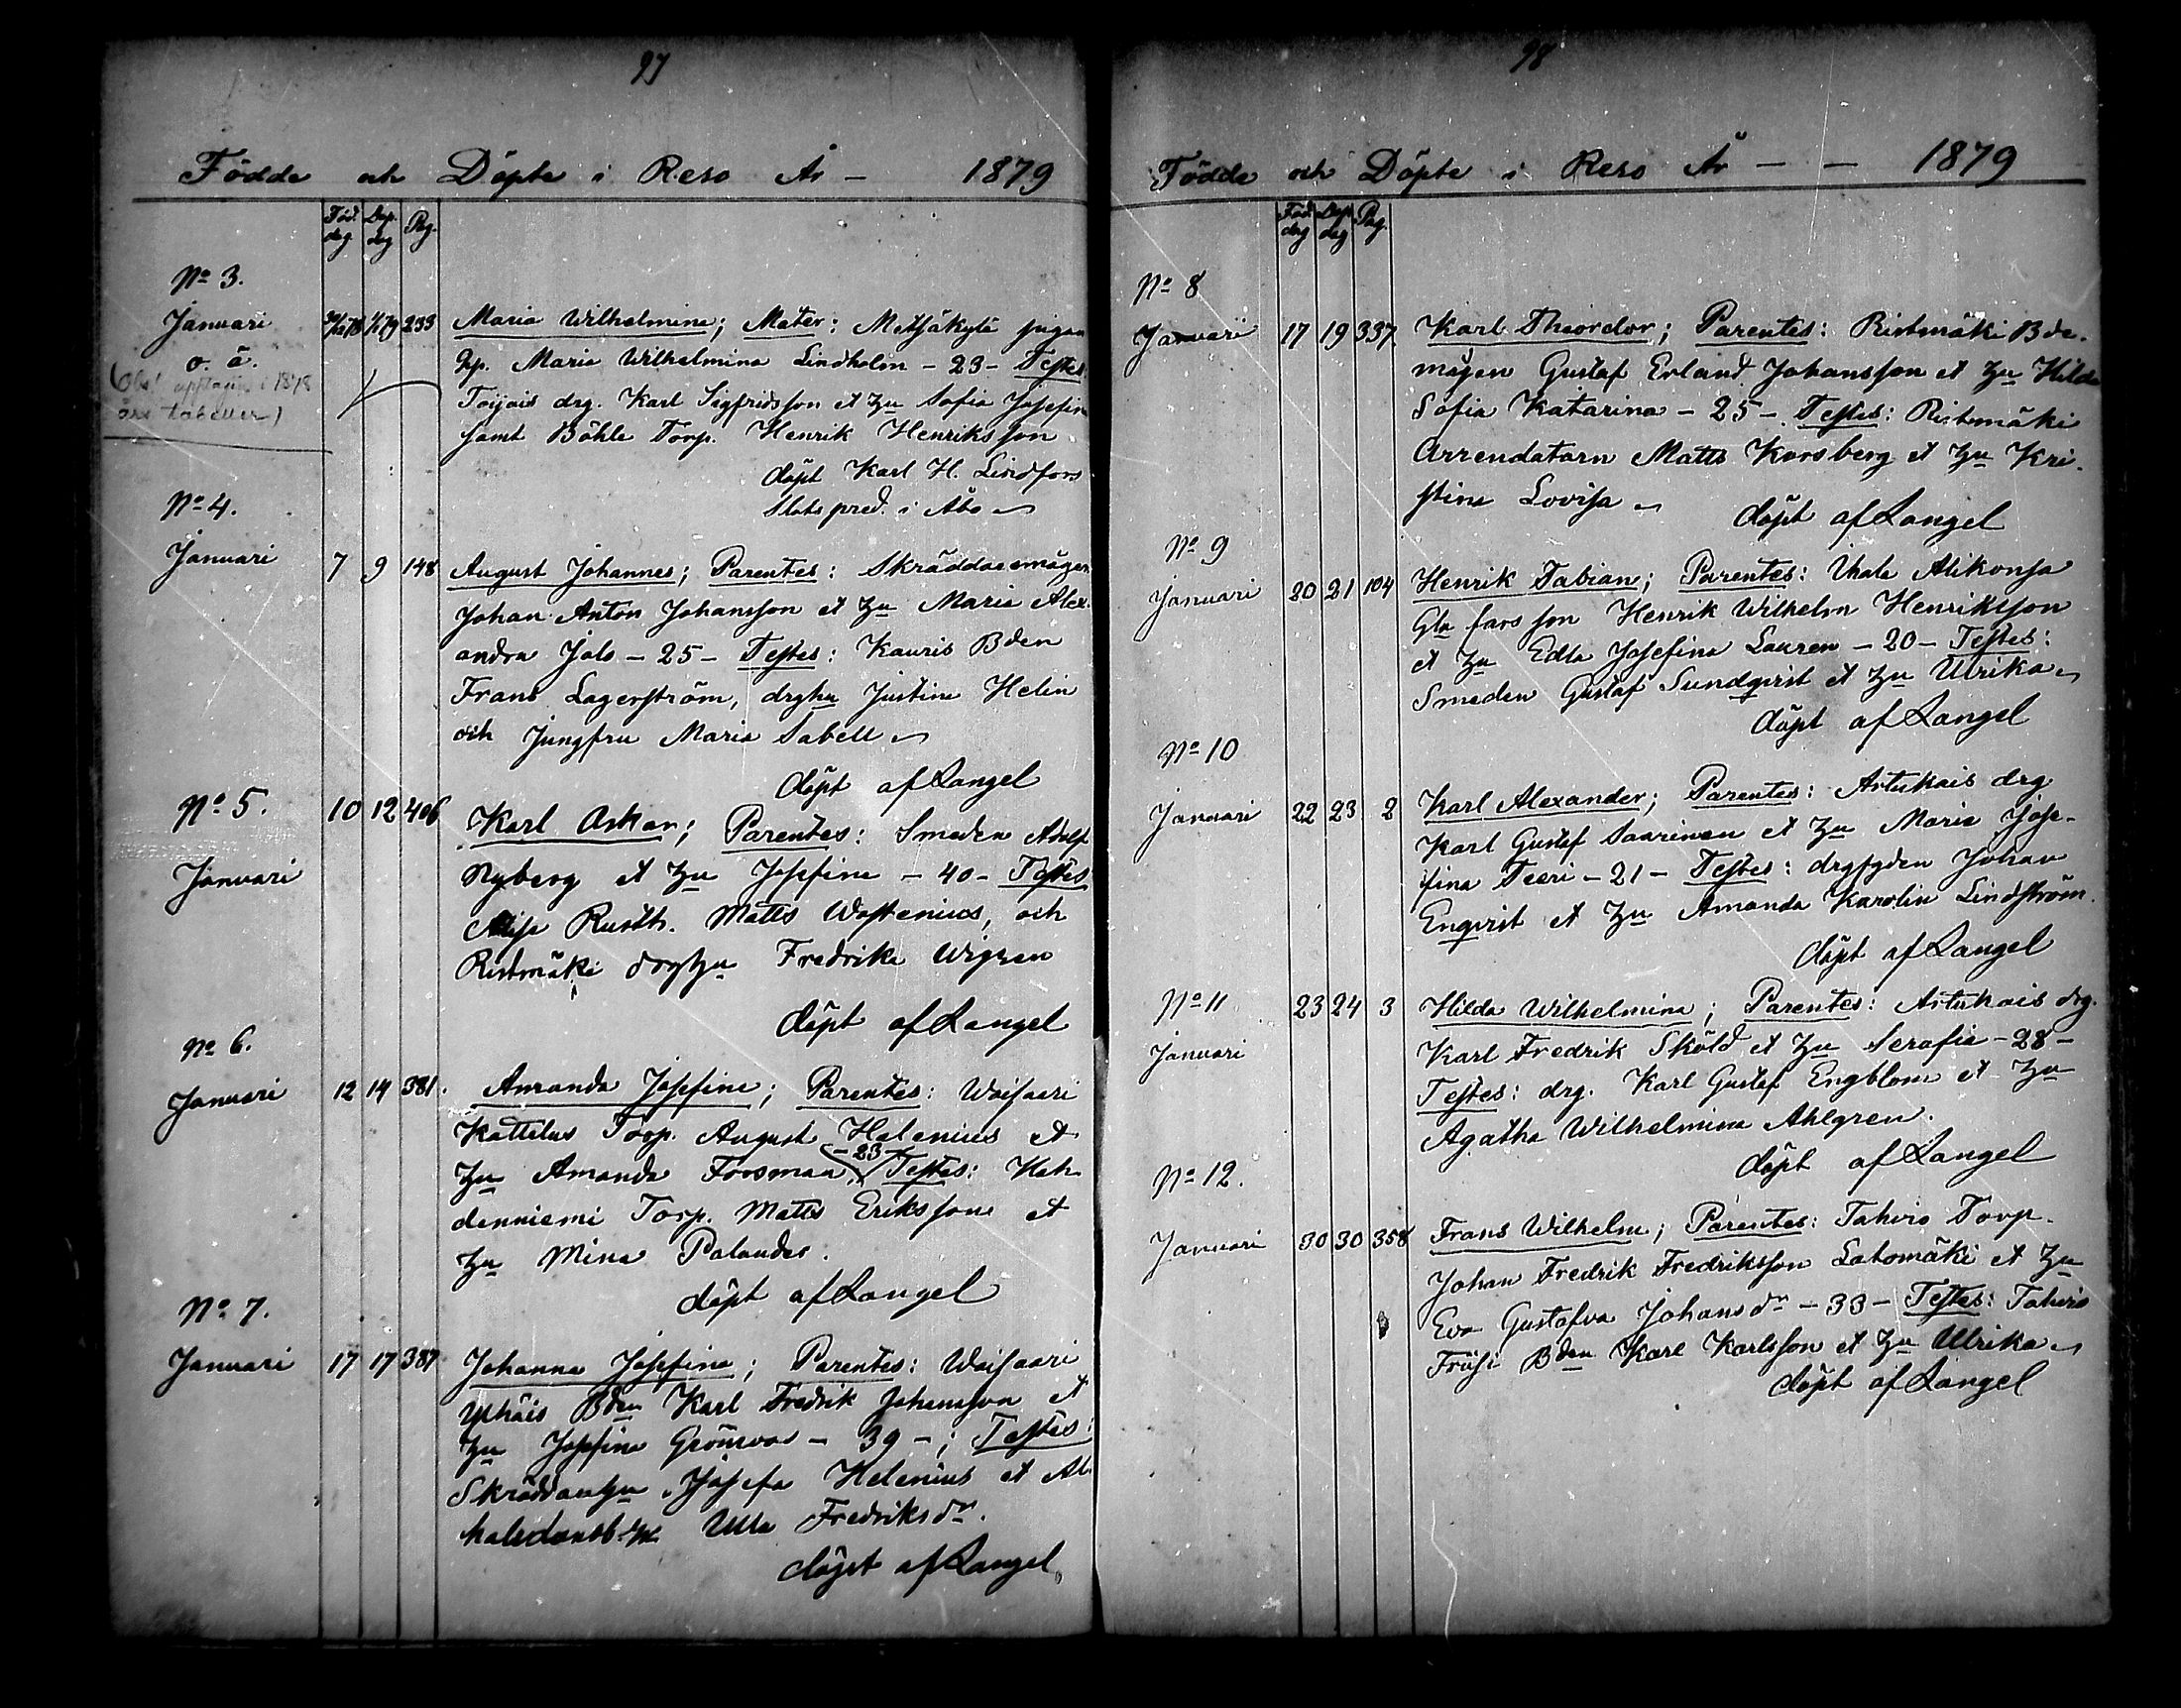 97
Födde och Döpte i Reso År – 1879
Föd. dag Dop. dag Pag.
No 3.
Januari 1/1 79 233 Maria Wilhelmina; Mater: Metsäkylä pigan
o. ä.
(Obs! upptagen i 1878
års tabeller)
Hp. Maria Wilhelmina Lindholm – 23 – Testes
Toijais drg. Karl Sigfridsson et Hu Sofia Josefin
samt Böhle Torp. Henrik Henriksson
döpt Karl H. Lindfors
Slotspred. i Åbo
No 4.
Januari 7 9 148 August Johannes; Parentes: Skräddaremågen
Johan Anton Johansson et Hu Maria Alex-
andra Jols – 25 – Testes: Kauris Bden
Frans Lagerström, drghu Justina Helin
och Jungfru Maria Sabell
döpt af Langel
No 5. 10 12 406 Karl Oskar; Parentes: Smeden Adolf
Januari
Nyberg et Hu Josefina – 40 – Testes
Rusth. Matts Wastenius, och
Ristmäki drghu Fredrika Wigren
döpt af Langel
No 6.
Januari 12 14 381. Amanda Josefina; Parentes: Waisaari
Kattelus Torp. August Helenius et
Hu Amanda Forsman – 23 – Testes: Kah-
denniemi Torp. Matts Eriksson et
Hu Mina Palander.
döpt af Langel
No 7.
Januari 17 17 387 Johanna Josefina; Parentes: Waisaari
Yhäis Bden Karl Fredrik Johansson et
Hu Josefina Grönroos – 39 –; Testes:
Skräddarhu Josefa Helenius et
Ulla Fredriksdr.
döpt af Langel
98
Födde och Döpte i Reso År – – 1879
Föd. dag Dop. dag Pag.
No 8
Januari 17 19 337. Karl Theordor; Parentes: Ristmäki Bde-
mågen Gustaf Erland Johansson et Hu Hilda
Sofia Katarina – 25 – Testes: Ristmäki
Arrendatorn Matts Korsberg et Hu Kri-
stina Lovisa
döpt af Langel
No 9
Januari 20 21 104 Henrik Fabian; Parentes: Ihala Alikonsa
Gla fars son Henrik Wilhelm Henriksson
et Hu Edla Josefina Lauren – 20 – Testes:
Smeden Gustaf Sundqvist et Hu Ulrika
döpt af Langel
No 10
Januari 22 23 2 Karl Alexander; Parentes: Artukais drg
Karl Gustaf Saarinen et Hu Maria Jose-
fina Teeri – 21 – Testes: drgfgden Johan
Engvist et Hu Amanda Karolin Lindström.
döpt af Langel
No 11 23 24 3 Hilda Wilhelmina; Parentes: Artukais drg.
Januari
Karl Fredrik Sköld et Hu Serafia – 28 –
Testes: drg. Karl Gustaf Engblom et Hu
Agatha Wilhelmina Ahlgren.
döpt af Langel
No 12.
Januari 30 30 358 Frans Wilhelm; Parentes: Tahvio Torp.
Johan Fredrik Fredriksson Latomäki et Hu
Eva Gustafva Johansdr – 33 – Testes: Tahvio
Bden Karl Karlsson et Hu Ulrika
döpt af Langel